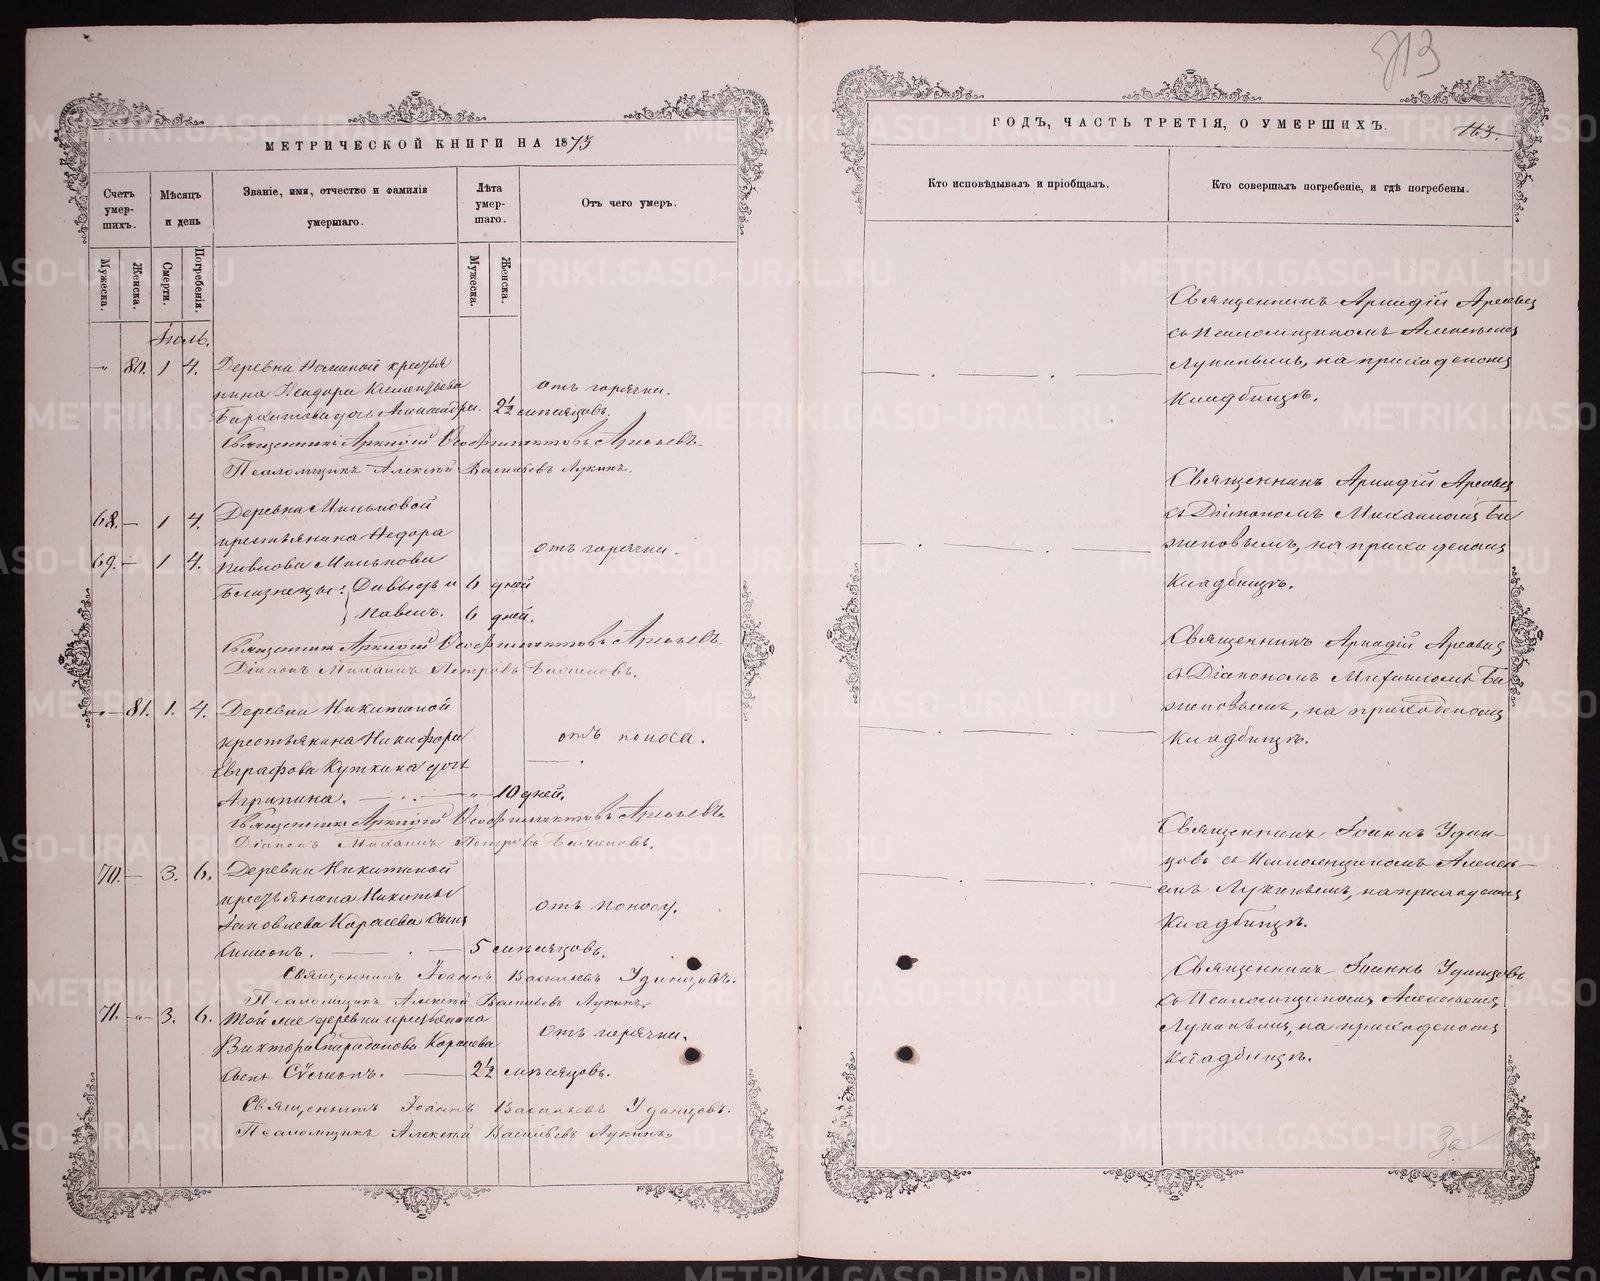 МЕТРИЧЕСКОЙ КНИГИ НА 1873
Счетъ умер-шихъ.
Мѣсяцъ и день
Званіе, имя, отчество и фамилія умершаго.
Лѣта умер-шаго.
Отъ чего умеръ.
Мужеска.
Женска.
Смерти.
Погребенія.
Мужеска.
Женска.
Іюль.
80. 1 4. Деревни крестья
нина Клементьева
дочь Александра. 2½ мѣсяцовъ.
отъ горячки.
Священникъ Аркадій Ѳеофилактовъ Арсеьевъ
Псаломщикъ Алексѣй Васильевъ Лукинъ.
68. — 1 4. Деревни Мильковой
крестьянина Ѳедора
69. — 1 4. Павлова Милькова
отъ горячки.
Близнецы: Давыдъ и 6 дней
Павелъ. 6 дней.
Священникъ Аркадій Ѳеофилактовъ Арсеьевъ
Діаконъ Михаилъ Петровъ
81. 1. 4. Деревни Никитиной
крестьянина Никифора
Евграфова Кузкина дочь
Агрипина. — 10 дней.
отъ поноса.
Священникъ Аркадій Ѳеофилактовъ Арсеьевъ
Діаконъ Михаилъ Петровъ
70. — 3. 6. Деревни Никитиной
крестьянина Никиты
Яковлева Карасева сынъ
Симеонъ. — 5 мѣсяцовъ.
отъ поносу.
Священникъ Іоаннъ Васильевъ Удинцовъ.
Псаломщикъ Алексѣй Васильевъ Лукинъ.
71. — 3. 6. Той же деревни крестьянина
Виктора Спиридонова Карасева
сынъ Сѵмеонъ. — 2½ мѣсяцовъ.
отъ горячки.
Священникъ Іоаннъ Васильевъ Удинцовъ.
Псаломщикъ Алексѣй Васильевъ Лукинъ.
713
ГОДЪ, ЧАСТЬ ТРЕТІЯ, О УМЕРШИХЪ.
113.
Кто исповѣдывалъ и пріобщалъ.
Кто совершалъ погребеніе, и гдѣ погребены.
Священникъ Аркадій
съ Псаломщикомъ Алексѣемъ
Лукинымъ, на приходскомъ
Кладбищѣ.
Священникъ Аркадій
съ Діакономъ Михаиломъ
на приходскомъ
Кладбищѣ.
Священникъ Аркадій
съ Діакономъ Михаиломъ
на приходскомъ
Кладбищѣ.
Священникъ Іоаннъ Удин-
цовъ съ Псаломщикомъ Алексѣ-
емъ Лукинымъ, на приходскомъ
Кладбищѣ.
Священникъ Іоаннъ Удинцовъ
съ Псаломщикомъ Алексѣемъ
Лукинымъ, на приходскомъ
Кладбищѣ.
METRIKI.GASO-URAL.RU